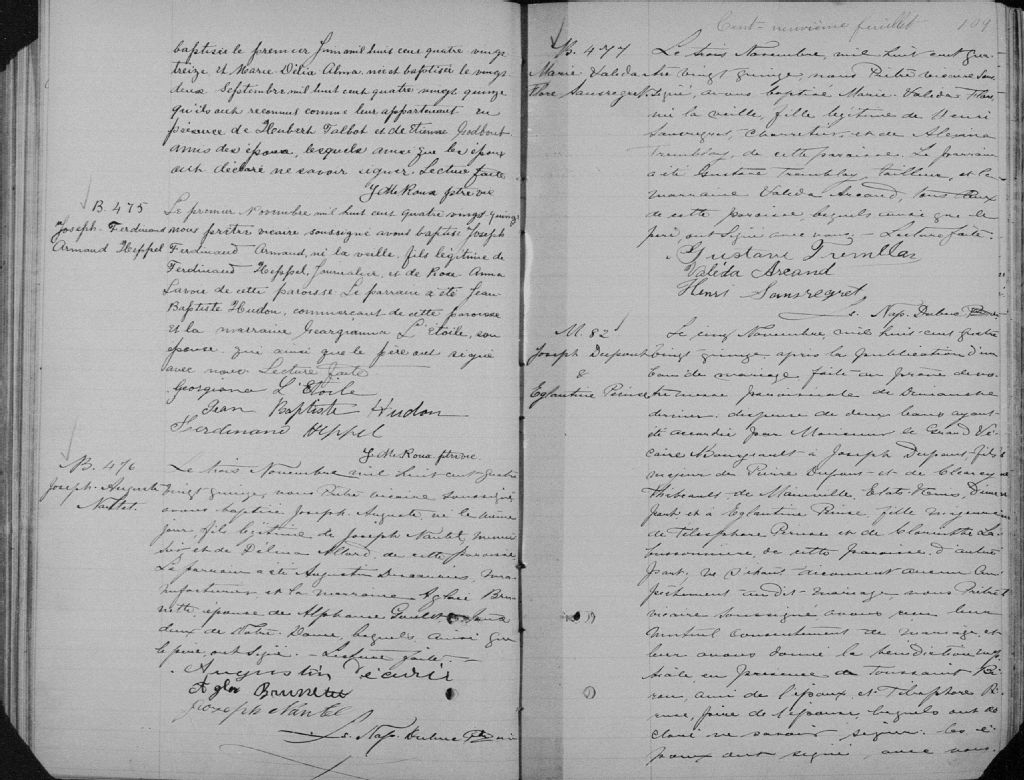 baptisée le premier Juin mil huit cent quatre vingt
treize et Marie-Délia Alma née et baptisée le vingt
deux Septembre mil huit cent quatre vingt quinze
qu'ils ont reconnus comme leur appartenant en
présence de Heubert Talbot et de Etienne Godbout
amis des époux, lesquels ainsi que les époux
ont déclaré ne savoir signer. Lecture faite
Roux ptre vic
B. 475
Joseph-Ferdinand
Armand Heppel
Le premier Novembre mil huit cent quatre vingt quinze
nous prêtre vicaire soussigné avons baptisé Joseph
Ferdinand Armand, né la veille, fils légitime de
Ferdinand Heppel, Journalier, et de Rose Anna
Lavoie de cette paroisse. Le parrain a été Jean
Baptiste Hudon, commerçant de cette paroisse
et la marraine Georgianna L'Etoile, son
épouse qui ainsi que le père ont signé
avec nous Lecture faite
Georgiana L'Etoile
Jean Baptiste Hudon
Ferdinand Heppel
Roux ptre vic
B. 476
Joseph-Auguste
Nantel.
Le trois Novembre mil huit cent quatre
vingt quinze, nous Prêtre vicaire soussigné
avons baptisé Joseph Auguste, né le même
jour, fils légitime de Joseph Nantel, menui
sier et de Délima Allard, de cette paroisse
Le parrain a été Augustin, ma-
nufacturier et la marraine Aglaé Bru
nette, épouse de Alphonse tous
deux de Notre-Dame, lesquels, ainsi que
le père, ont signé. - Lecture faite. -
Augustin
Aglae Brunette
Joseph Nantel
Nap. Dubuc Ptre vic
Cent-neuvième feuillet 109
B. 477
Marie Valéda
Flore Sansregret
Le trois Novembre, mil huit cent qua-
tre vingt quinze, nous Prêtre vicaire sous
signé, avons baptisé Marie Valéda Flore
née la veille, fille légitime de Henri
Sansregret, Charretier, et de Alexina
Tremblay, de cette paroisse. Le parrain
a été Gustave Tremblay, tailleur, et la
marraine Valéda Arcand, tous deux
de cette paroisse, lesquels ainsi que le
père, ont signé avec nous. - Lecture faite.
Gustave Tremblay
Valéda Arcand
Henri Sansregret
Nap. Dubuc Ptre vic
M. 82
Joseph Dupont
&
Eglantine Perusse
Le cinq Novembre, mil huit-cent quatre
vingt quinze, après la publication d'un
ban de mariage faite au prône de no-
tre messe paroissiale de Dimanche
dernier, dispense de deux bans ayant
été accordée par Monsieur le Grand Vi-
caire Bourgeault à Joseph Dupont fils
majeur de Pierre Dupont et de
Thibeault de, Etats-Unis, d'une
part et à Eglantine Perusse, fille majeure
de Télesphore Perusse et de
, de cette paroisse, d'autre
part, ne s'étant découvert aucun em
pêchement au dit mariage, nous Prêtre
vicaire soussigné avons reçu leur
mutuel consentement de mariage, et
leur avons donné la bénédiction nup
tiale en présence de Toussaint
, ami de l'époux, et Télesphore Pe
russe, père de l'épouse, lesquels ont dé
claré ne savoir signer. les é
poux ont signé avec nous.